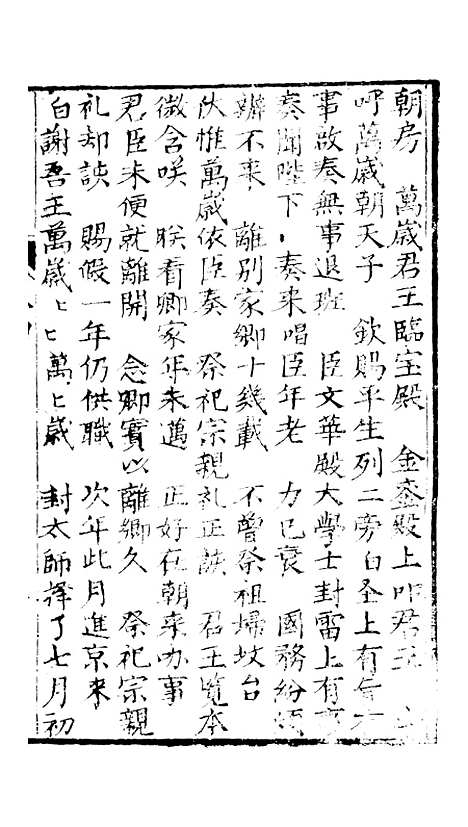 朝房　萬歲君王臨宝殿　金鑾殿上叩君王　山
呼萬歲朝天子　欽賜平生列二旁白圣上有旨
事啟奏無事退班　臣文華殿大學士封雷上有事
奏聞陛下　奏來唱臣年老　力已衰　國務紛
辦不來　離別家鄉十幾載　不曾祭祖掃坟台
伏惟萬歲依臣奏　祭祀宗親礼正該　君王览本
微含咲　朕看卿家年未邁　正好在朝来办事
君臣未便就離開　念卿實以離鄉久　祭祀宗親
礼却該　賜假一年仍供職　次年此月進京来
白謝吾王萬歲〻〻萬〻歲　封太師擇了七月初